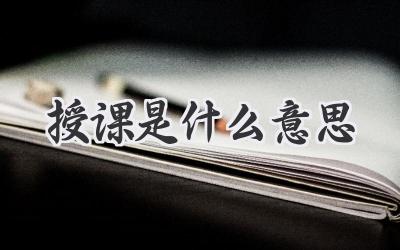 授课是什么意思